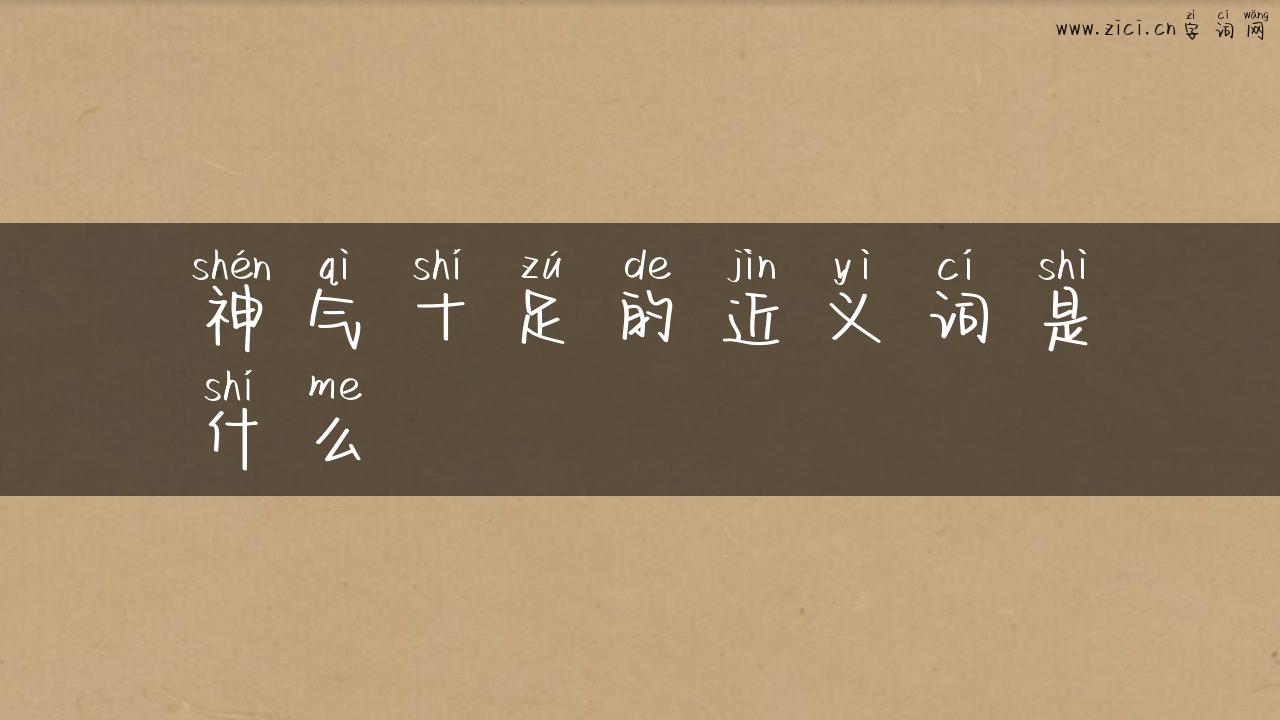 zì cí wǎng
www.zici.cn 字 词 网
shén qì shí zú de jìn yì cí shì
神 气 十 足 的 近 义 词 是
shí me
什 么